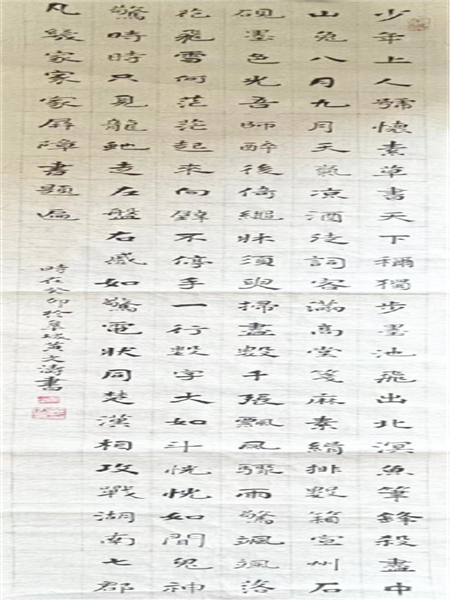 少年上人號懷素草書天下稱獨步墨池飛出北溟魚筆鋒殺盡中
山兔八月九月天氣凉酒徒詞客滿高堂箋麻素絹排數箱宣州石
硯墨色光吾師醉後倚繩牀須臾掃盡數千張飄風驟雨驚颯颯落
花飛雪何茫茫起來向壁不停手一行數字大如斗怳怳如聞鬼神
驚時時只見龍虵走左盤右蹙如驚電狀同楚漢相攻戰湖南七郡
凡幾家家家屏障書題遍
時在癸卯於阜城黃文濤書